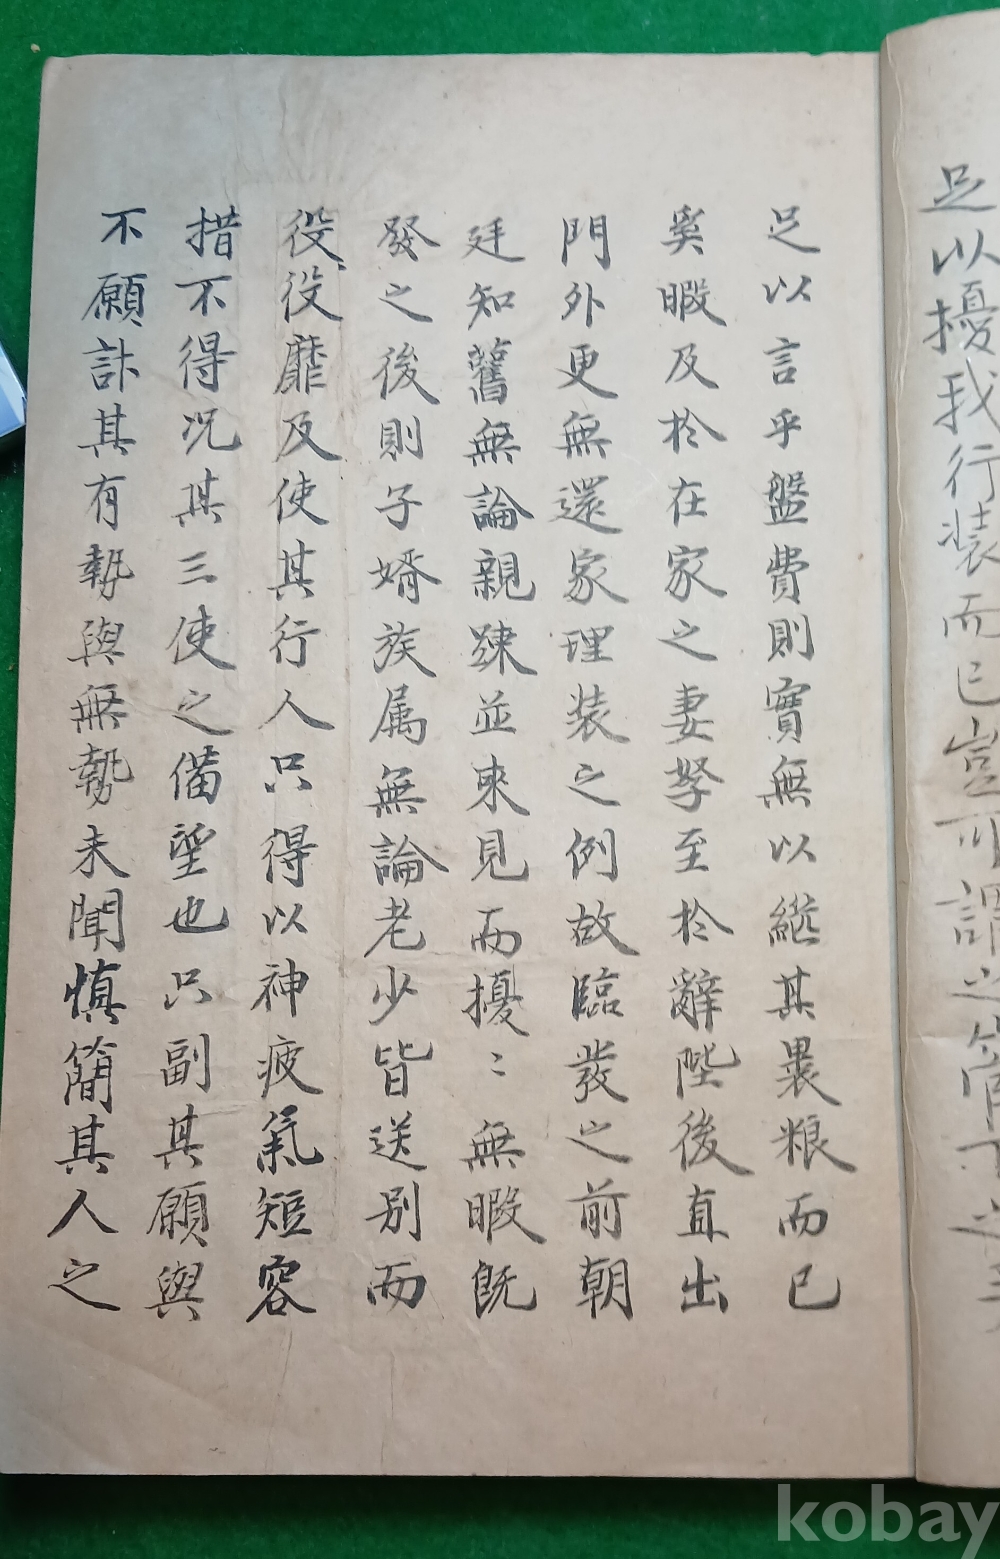 足以擾我行装而已豈可謂之
足以言乎盤費則實無以繼其裹粮而已
奚暇及於在家之妻孥至於辭陛後直出
門外更無還家理装之例故臨發之前朝
廷知舊無論親踈並來見而擾〻無暇旣
發之後則子婿族属無論老少皆送別而
役役靡及使其行人只得以神疲氣短容
措不得况其三使之備望也只副其願與
不願計其有勢與無勢未聞慎簡其人之
kobay